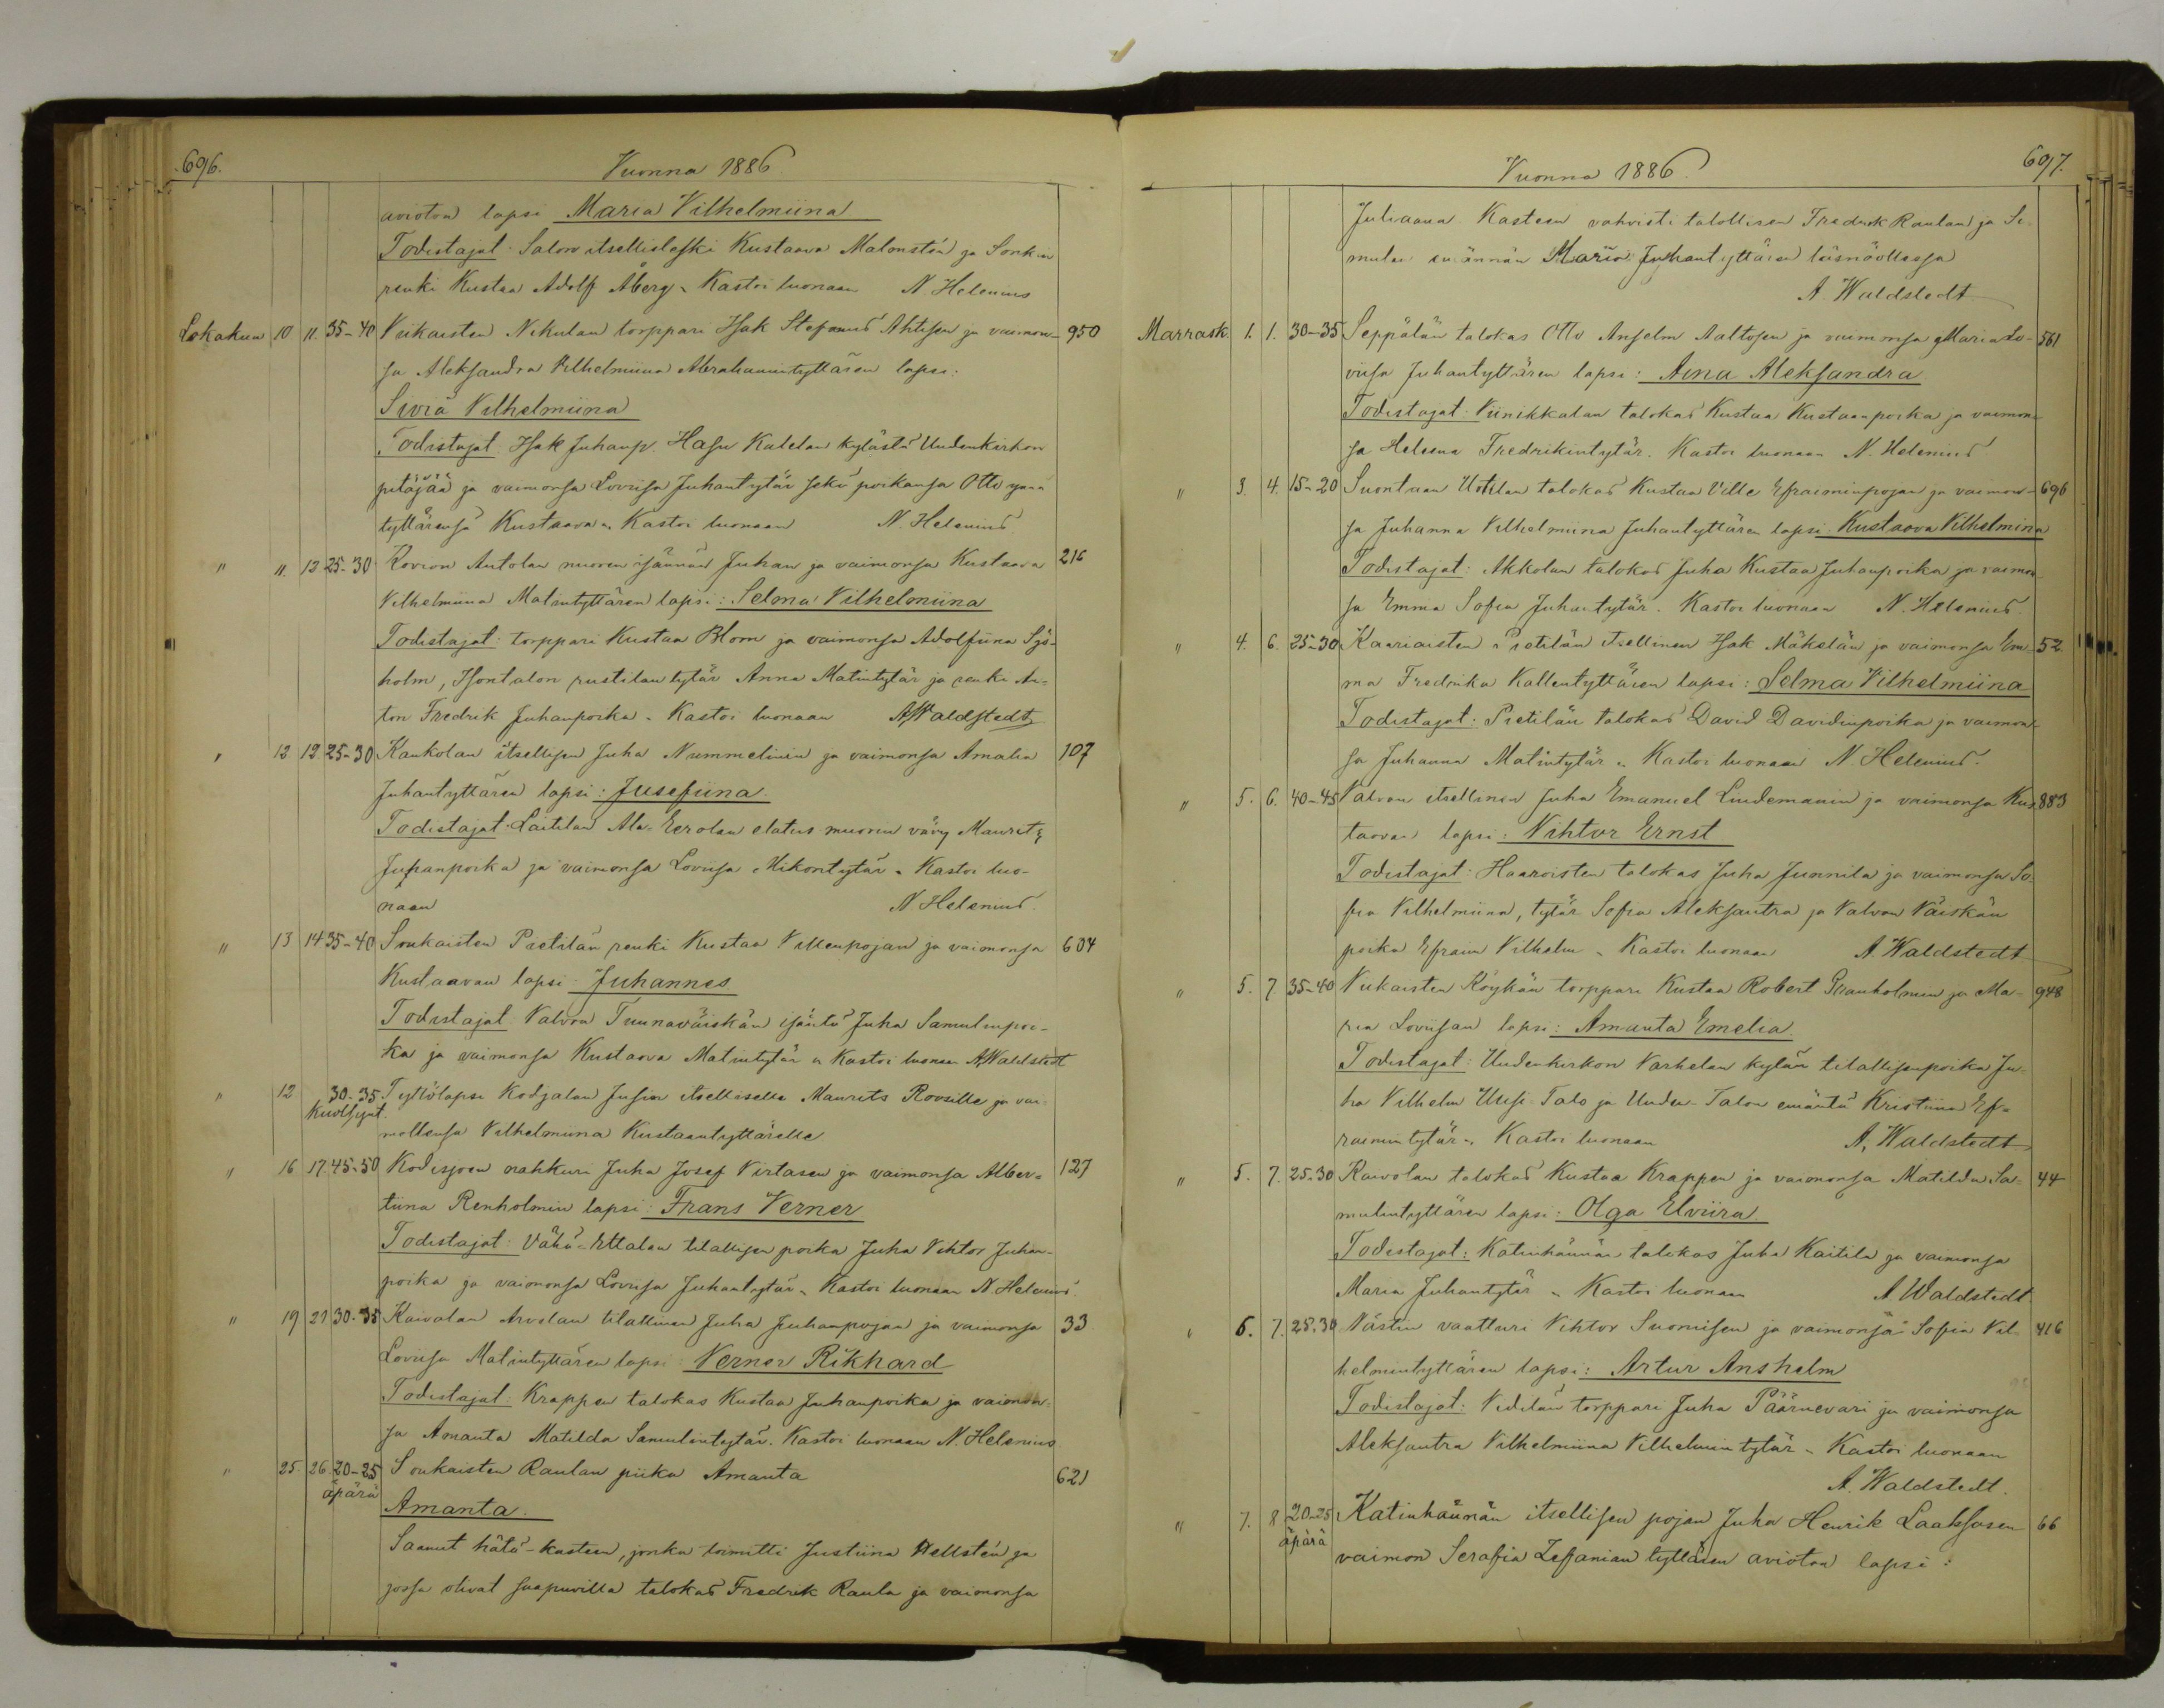 696.
Vuonna 1886.
avioton lapsi Maria Vilhelmiina
Todistajat: Salon itsellisleski Kustaava Malmstén ja Sonkin
renki Kustaa Adolf Åberg. Kastoi luonaan N. Helenius
Lokakuu 10 11. 35-40 Nikulan torppari Isak Stefanus Ahtosen ja vaimon- 950
sa Aleksandra Vilhelmiina Abrahamintyttären lapsi:
Siviä Vilhelmiina
Todistajat: Isak Juhanp. Hasu Kalelan kylästä Uudenkirkon
pitäjää ja vaimonsa Loviisa Juhantytär sekä poikansa Otto ynnä
tyttärensä Kustaava. Kastoi luonaan N. Helenius.
" 11. 13 25-30 Kovion Antolan nuoren isännän Juhan ja vaimonsa Kustaava 216
Vilhelmiina Matintyttären lapsi: Selma Vilhelmiina
Todistajat: torppari Kustaa Blom ja vaimonsa Adolfiina Sjö-
holm, Isontalon rustitilan tytär Anna Matintytär ja renki An-
ton Fredrik Juhanpoika. Kastoi luonaan A. Waldstedt
" 12 12 25-30 Kaukolan itsellisen Juha Nummelinin ja vaimonsa Amalia 107
Juhantyttären lapsi: Jusefiina.
Todistajat: Laitilan Ala-Eerolan elatus muorin vävy Maurits
Juhanpoika ja vaimonsa Loviisa Mikontytär. Kastoi luo-
naan N. Helenius.
" 13 14 35-40 Soukaisten Pietilän renki Kustaa Villenpojan ja vaimonsa 604
Kustaavan lapsi: Juhannes
Todistajat: Valvon Tuunaväiskän isäntä Juha Samulinpoi-
ka ja vaimonsa Kustaava Matintytär. Kastoi luonaan A. Waldstedt
" 12 30-35 Tyttölapsi Kodjalan Jusin itselliselle Maurits Roosille ja vai-
kuoll. synt.
mollensa Vilhelmiina Kustaantyttärelle
" 16 17. 45-50 Kodisjoen nahkuri Juha Josef Virtasen ja vaimonsa Alber- 127
tiina Renholmin lapsi: Frans Verner
Todistajat: Vähä-Ettalan tilallisen poika Juha Vihtor Juhan-
poika ja vaimonsa Loviisa Juhantytär. Kastoi luonaan N. Helenius.
" 19 21 30-35 Kaivolan Arvolan tilallinen Juha Juhanpojan ja vaimonsa 33
Loviisa Matintyttären lapsi: Verner Rikhard
Todistajat: Krappen talokas Kustaa Juhanpoika ja vaimon-
sa Amanta Matilda Samulintytär. Kastoi luonaan N. Helenius
" 25. 26 20-25 Soukaisten Raulan piika Amanta 621
äpärä
Amanta.
Saanut hätä-kasteen, jonka toimitti Justiina Hellstén ja
jossa olivat saapuvilla talokas Fredrik Raula ja vaimonsa
Vuonna 1886.
697.
Juliaana. Kasteen vahvisti talollisen Fredrik Raulan ja Si-
mulan emännän Maria Juhantyttären läsnäollessa
A. Waldstedt
Marrask. 1. 1. 30-35 Seppälän talokas Otto Anselm Aaltosen ja vaimonsa Maria Lo- 561
viisa Juhantyttären lapsi: Aina Aleksandra
Todistajat: Viinikkalan talokas Kustaa Kustaanpoika ja vaimon-
sa Helena Fredrikintytär. Kastoi luonaan N. Helenius
" 3. 4. 15-20 Suontaan Uotilan talokas Kustaa Ville Efraiminpojan ja vaimon- 696
sa Juhanna Vilhelmiina Juhantyttären lapsi Kustaava Vilhelmina
Todistajat: Akkolan talokas Juha Kustaa Juhanpoika ja vaimon-
sa Emma Sofia Juhantytär. Kastoi luonaan N. Helenius.
" 4. 6. 25-30 Kaariaisten Pietilän itsellinen Isak Mäkelän ja vaimonsa Em- 52.
ma Fredrika Kallentyttären lapsi: Selma Vilhelmiina
Todistajat: Pietilän talokas David Davidinpoika ja vaimon-
sa Juhanna Matintytär. Kastoi luonaan N. Helenius.
" 5. 6. 40-45 Valvon itsellinen Juha Emanuel Lindemanin ja vaimonsa Kus- 883
taavan lapsi: Vihtor Ernst
Todistajat: Haaroisten talokas Juha Junnila ja vaimonsa So-
fia Vilhelmiina, tytär Sofia Aleksantra ja Valvon Väiskän
poika Efraim Vilhelm. Kastoi luonaan A. Waldstedt
" 5. 7 35-40 Köykän torppari Kustaa Robert Granholmin ja Ma- 948
ria Loviisan lapsi: Amanta Emelia.
Todistajat: Uudenkirkon Varhelan kylän tilallisenpoika Ju-
ha Vilhelm Uusi-Talo ja Uuden-Talon emäntä Kristiina Ef-
raimintytär. Kastoi luonaan A. Waldstedt
" 5. 7. 25-30 Kaivolan talokas Kustaa Krappen ja vaimonsa Matilda Sa- 44
mulintyttären lapsi: Olga Elviira.
Todistajat: Katinhännän talokas Juha Kaitila ja vaimonsa
Maria Juhantytär. Kastoi luonaan A. Waldstedt.
" 6. 7. 25-30 Västin vaatturi Vihtor Suomisen ja vaimonsa Sofia Vil- 416
helmintyttären lapsi: Artur Anshelm
Todistajat: Vidilän torppari Juha Päärnevari ja vaimonsa
Aleksantra Vilhelmiina Vilhelmin tytär. Kastoi luonaan
A. Waldstedt.
" 7. 8 20-25 Katinhännän itsellisen pojan Juha Henrik Laaksosen 66
äpärä
vaimon Serafia Zefanian tyttären avioton lapsi: